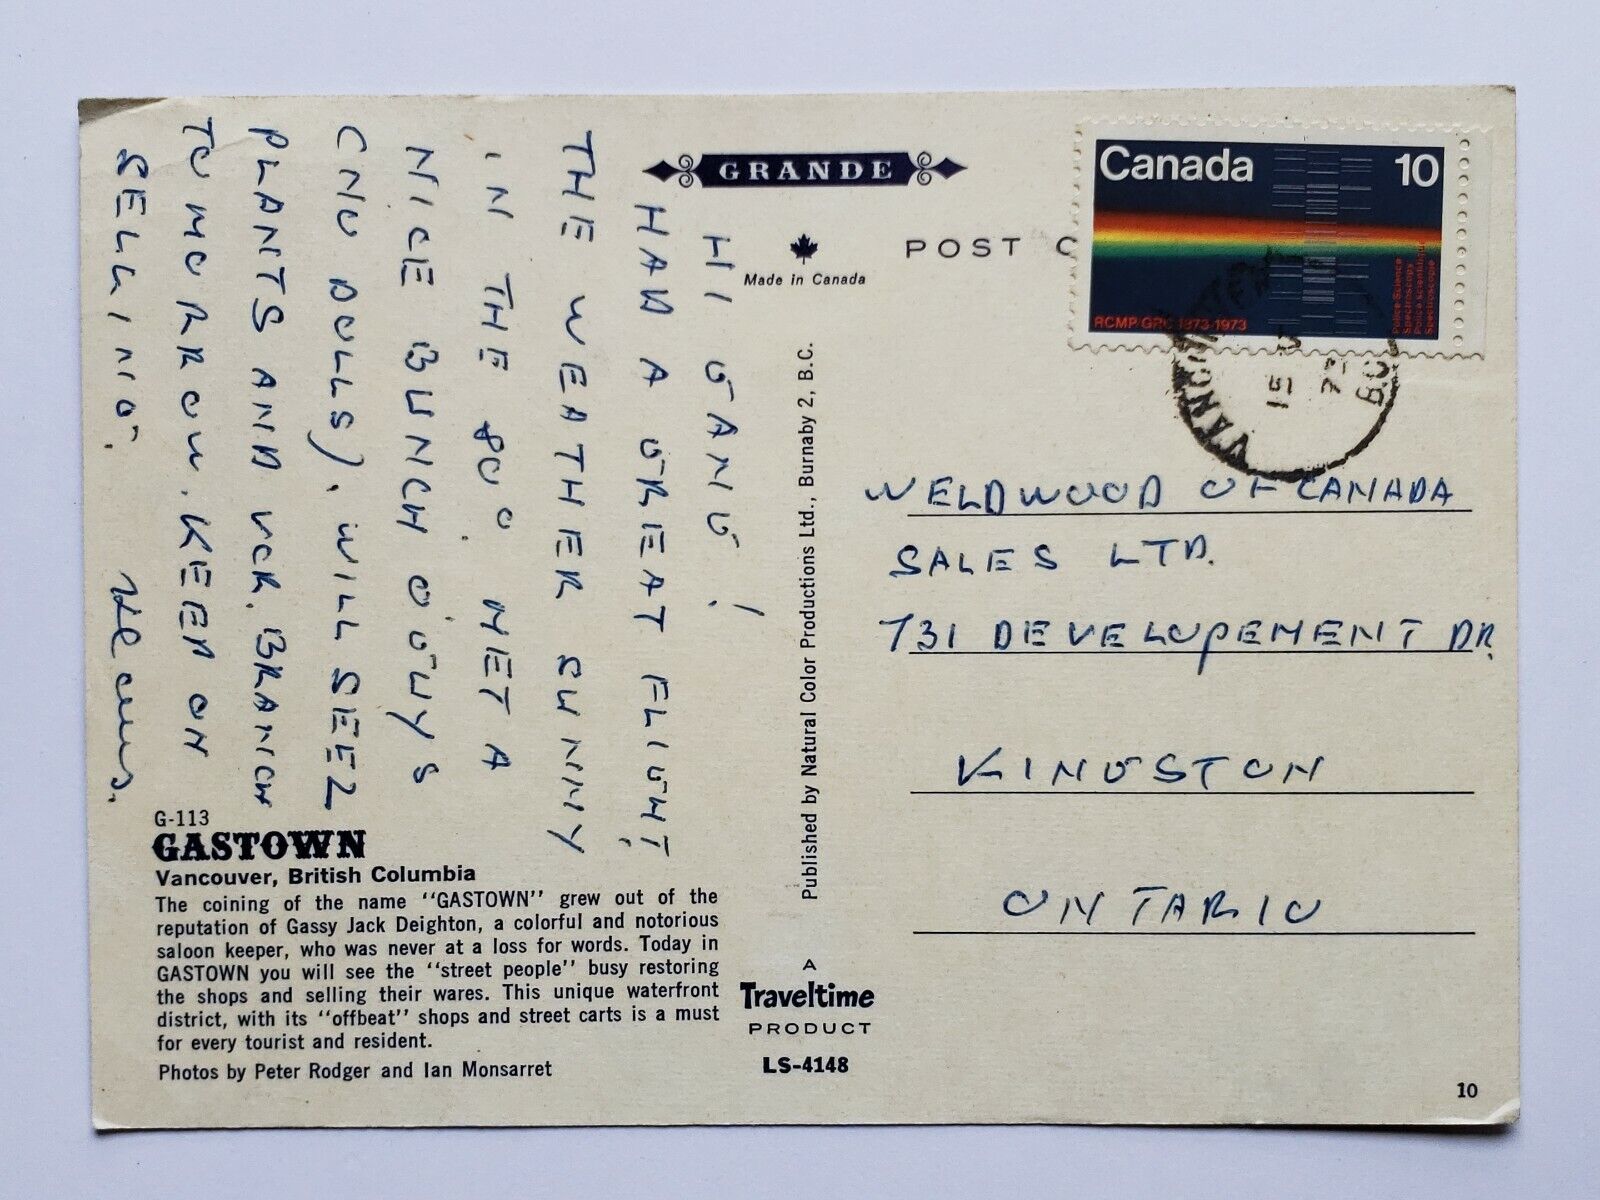 GRANDE
Made in Canada
POST C
Canada 10
RCMP/GRC 1873-1973
Police Science
Spectroscopy
Police scientifique
Spectroscopie
VANCOUVER
15
73
B.C.
HI GANG!
HAD A GREAT FLIGHT.
THE WEATHER SUNNY
IN THE 80°. MET A
NICE BUNCH O'GUYS
(NO DOLLS). WILL SEE 2
PLANTS AND VCR. BRANCH
TOMORROW. KEEP ON
SELLING.
WELDWOOD OF CANADA
SALES LTD.
731 DEVELOPEMENT DR.
KINGSTON
ONTARIO
Published by Natural Color Productions Ltd., Burnaby 2, B.C.
G-113
GASTOWN
Vancouver, British Columbia
The coining of the name "GASTOWN" grew out of the
reputation of Gassy Jack Deighton, a colorful and notorious
saloon keeper, who was never at a loss for words. Today in
GASTOWN you will see the "street people" busy restoring
the shops and selling their wares. This unique waterfront
district, with its "offbeat" shops and street carts is a must
for every tourist and resident.
Photos by Peter Rodger and Ian Monsarret
A
Traveltime
PRODUCT
LS-4148
10